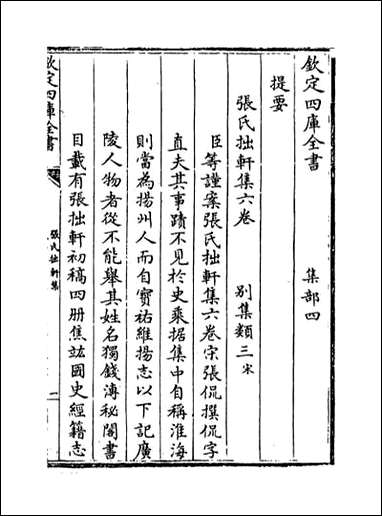 欽定四庫全書　　　集部四
提要
張氏拙軒集六卷　　別集類三宋
臣等謹案張氏拙軒集六卷宋張侃撰侃字
直夫其事蹟不見於史乘据集中自稱淮海
則當為揚州人而自寳祐維揚志以下記廣
陵人物者從不能舉其姓名獨錢溥秘閣書
目載有張拙軒初稿四册焦竑國史經籍志
欽定四庫全書
張氏拙軒集